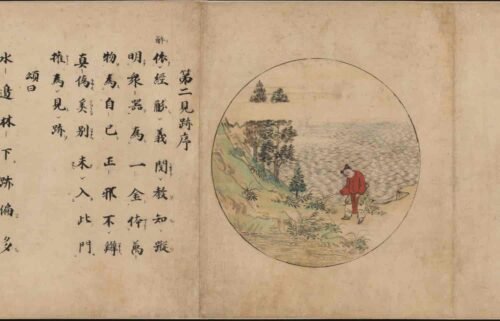 第二見跡序
依經解義閱教知蹤
明衆器為一金体萬
物為自己正邪不辨
真偽奚別未入此門
權為見跡
頌曰
水邊林下跡偏多